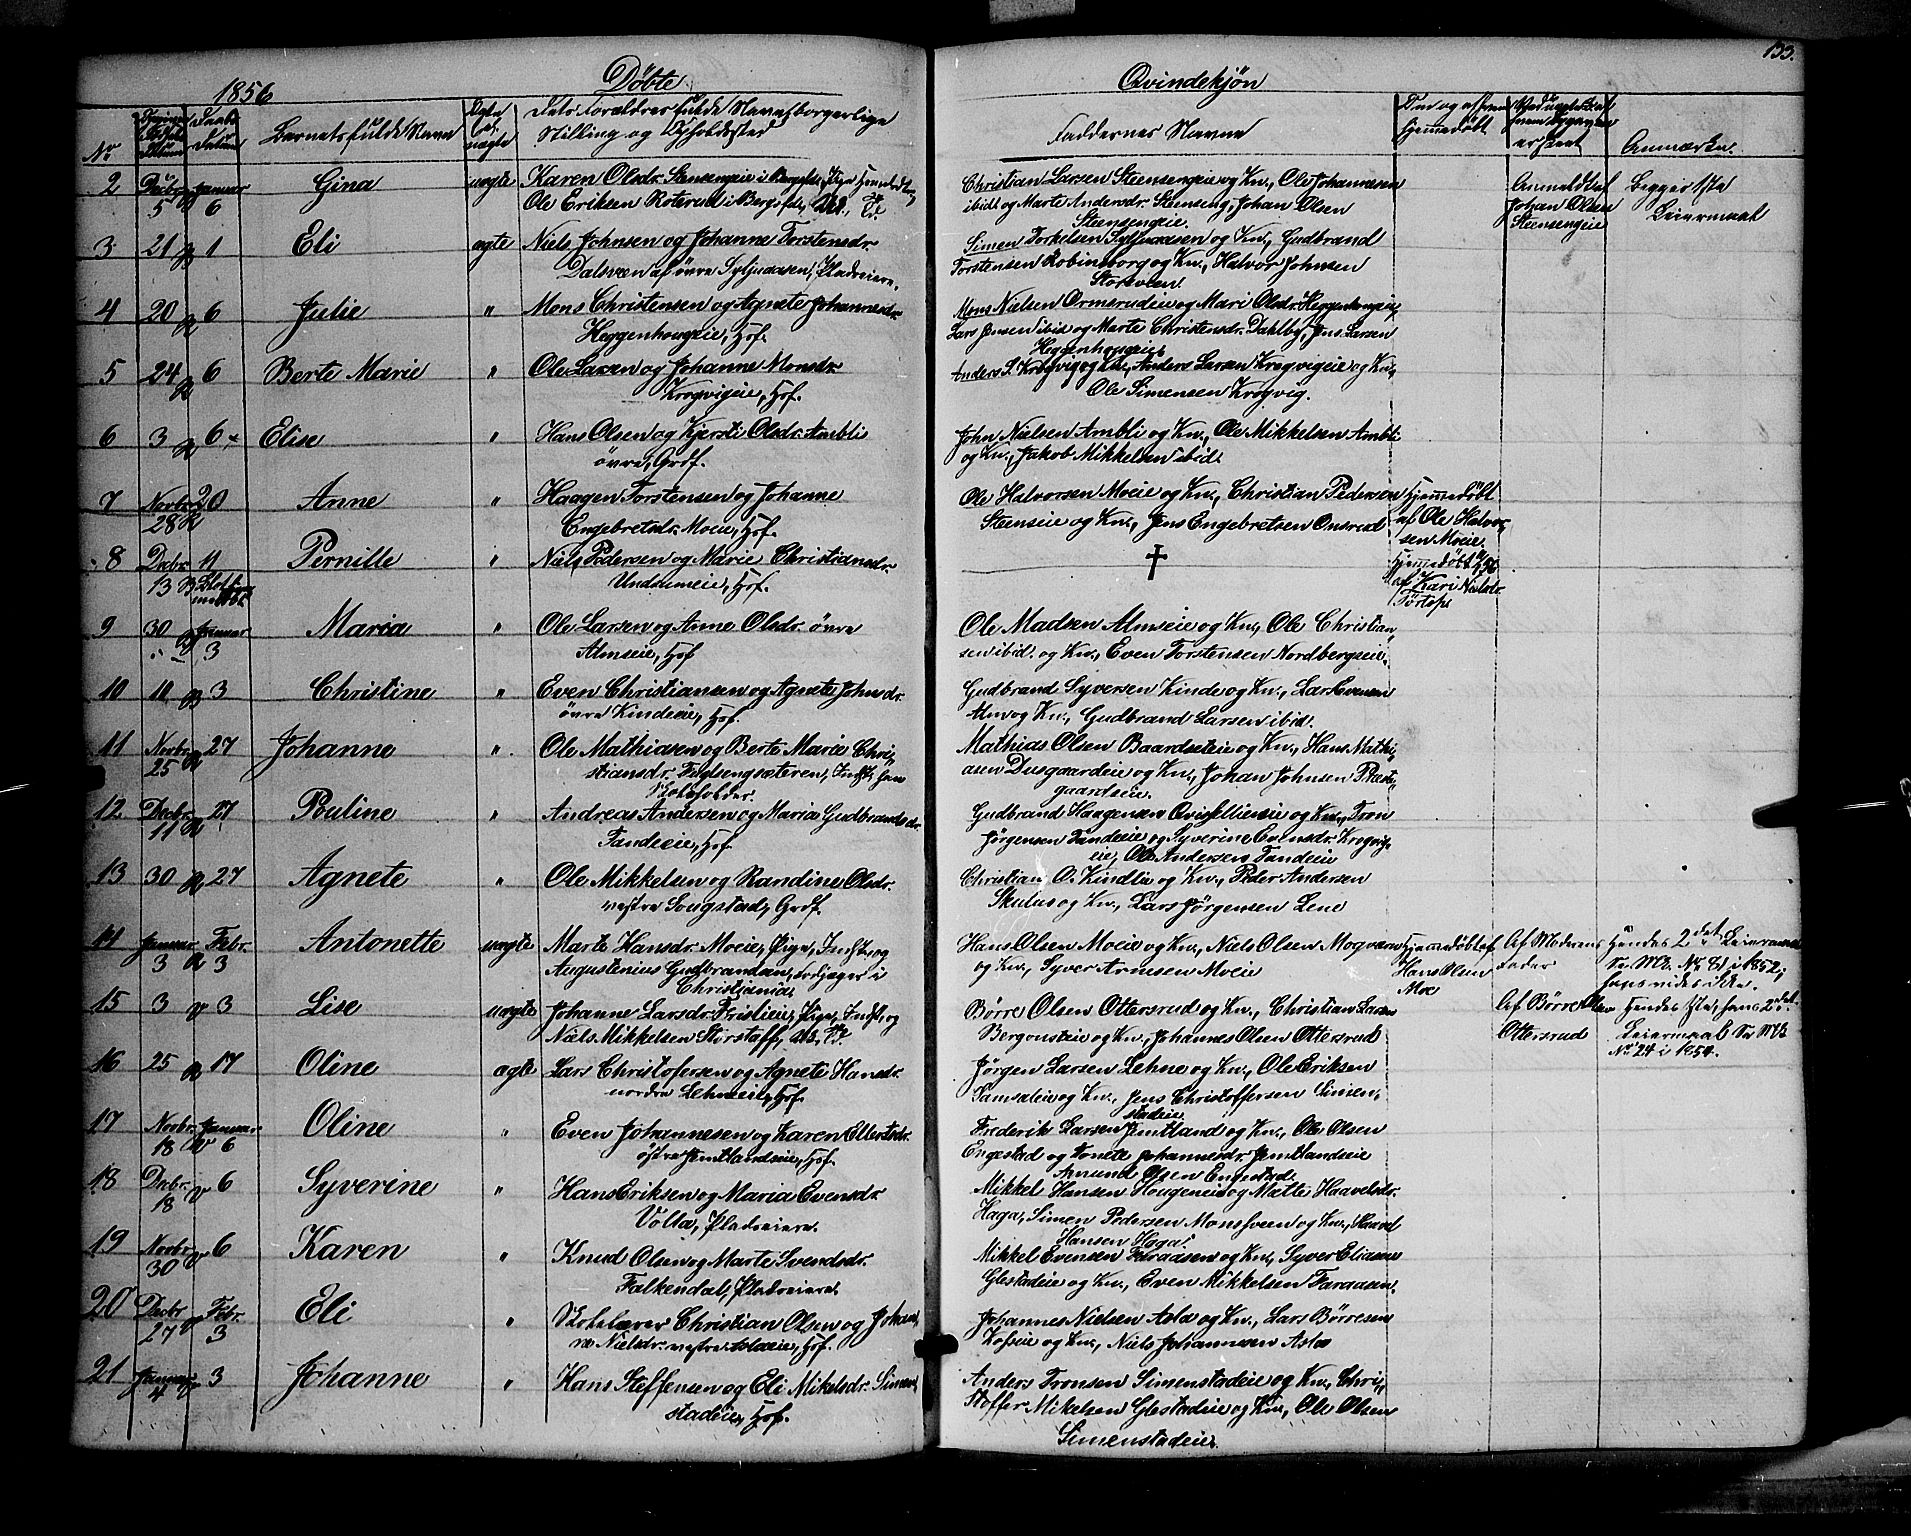 133.
1856
Döbte
Qvindekjön
No
Daabs Datum
Barnets fulde Navn
Dets Forældres fulde Navn, borgerlige
Stilling og Opholdssted
Faddernes Navne
hjemmedöbt
Anmærkn.
2 Decbr. 5 Januar 6 Gina uægte Karen Olsdr. Steensengeie
Ole Eriksen Roterud i
Christian Larsen Steensengeie og Kn., Ole Johannesen
ibid. og Marte Andersdr. Steenseng, Johan Olsen
Steensengeie.
Anmeldt af
Johan Olsen
Steensengeie
Begges 1ste
Leiermaal
3 21 1 Eli ægte Niels Johnsen og Johanne Torstensdr.
Dalsveen af övre Syljuaasen, Pladseiere.
Simen Torkelsen Syljuaasen og Kn., Gudbrand
Torstensen Robinsborg og Kn., Halvor Johnsen
Storsveen
4 20 6 Julie " Mons Christensen og Agnete Johannesdr.
Heggenhougeie, Hof.
Mons Nielsen Ormerudeie og Mari Olsdr. Heggenhougeie,
Lars Jensen ibid og Marte Christensdr. Dahlby, Jens Larsen
Heggenhougeie
5 24 6 Berte Marie " Ole Larsen og Johanne Monsdr.
Krogvigeie, Hof.
Anders S. Krogvig og Kn., Anders Larsen Krogvigeie og Kn.,
Ole Simensen Krogvig.
6 3 6 Elise " Hans Olsen og Kjersti Olsdr. Ambli
övre, Grdf.
John Nielsen Ambli og Kn., Ole Mikkelsen Ambli
og Kn., Jakob Mikkelsen ibid.
7 Novbr. 28 20 Anne " Haagen Torstensen og Johanne
Engebretsdr. Moeie, Hof.
Ole Halvorsen Moeie og Kn., Christian Pedersen
Steenseie og Kn., Jens Engebretsen Onsrud
Hjemmedöbt
af Ole Halvor-
sen Moeie.
8 Decbr. 13 Pernille " Niels Pedersen og Marie Christiansdr.
Undsumeie, Hof.
†
Hjemmedöbt
af Kari Nielsdr.
9 30 Januar 3 Maria " Ole Larsen og Anne Olsdr. övre
Almseie, Hof
Ole Madsen Almseie og Kn., Ole Christian-
sen ibid. og Kn., Even Torstensen Nordbergseie.
10 11 3 Christine " Even Christiansen og Agnete Johnsdr.
övre Kindeeie, Hof.
Gudbrand Syversen Kinde og Kn., Lars Evensen
Alm og Kn., Gudbrand Larsen ibid.
11 Novbr. 25 27 Johanne " Ole Mathiasen og Berte Marie Chri-
stiansdr. Fuglsengsæteren, Indst. som
Skoleholder.
Mathias Olsen Baardseteie og Kn., Hans Mathi-
asen Dusgaardeie og Kn., Johan Johnsen Præste-
gaardseie.
12 Decbr. 11 27 Pauline " Andreas Andersen og Maria Gudbrandsdr.
Fandeeie, Hof
Gudbrand Haagensen og Kn., Tron
Jörgensen Fandeeie og Syverine Evensdr. Krogvig-
eie, Ole Andersen Fandeeie
13 30 27 Agnete " Ole Mikkelsen og Randine Olsdr.
vestre Sougstad, Grdf.
Christian O. Kindlie og Kn., Peder Andersen
Skulus og Kn., Lars Jörgensen Lene
14 Januar 3 Febr. 3 Antonette uægte Marte Hansdr. Moeie, Pige, Indst. og
Augustenius Gudbrandsen, Jordjager i
Christiania
Hans Olsen Moeie og Kn., Niels Olsen
og Kn., Syver Arnesen Moeie
Hjemmedöbt af
Hans Olsen
Moe
Af Moderens
Fader
Hendes 2det Leiermaal
Se MB. No 81 i 1852;
hans vides ikke.
15 3 3 Lise uægte Johanne Larsdr. Fristieie, Pige, Indst., og
Niels Mikkelsen Storstaff,
Börre Olsen Ottersrud og Kn., Christian Larsen
Bergonsteie og Kn., Johannes Olsen Ottersrud
Af Börre Olsen
Ottersrud
Hendes 1ste, hans 2det
Leiermaal Se MB
No 24 i 1854.
16 25 17 Oline ægte Lars Christofersen og Agnete Hansdr.
nordre Lehneeie, Hof.
Jörgen Larsen Lehne og Kn., Ole Eriksen
Samsaleie og Kn., Jens Christoffersen Simen-
stadeie
17 Novbr. 18 Januar 6 Oline " Even Johannesen og Karen Ellertsdr.
östre Jemtlandseie, Hof.
Frederik Larsen Jemtland og Kn., Ole Olsen
Engestad og Tonete Johannesdr. Jemtlandeie
Amund Olsen Engestad.
18 Decbr. 18 6 Syverine " Hans Eriksen og Maria Evensdr.
Volla, Pladseiere.
Mikkel Hansen Hougeneie og Mætte Haavelsdr.
Haga, Simen Pedersen Monsveen og Kn., Haavel
Hansen Haga.
19 Novbr. 30 6 Karen " Knud Olsen og Marte Svendsdr.
Falkendal, Pladseiere.
Mikkel Evensen Faraasen og Kn., Syver Eliasen
Glestadeie og Kn., Even Mikkelsen Faraasen.
20 Decbr. 27 Febr. 3 Eli " Skolelærer Christian Olsen og Johan-
ne Nielsdr. vestre Aslaeie, Hof.
Johannes Nielsen Asla og Kn., Lars Börresen
Hofseie og Kn., Niels Johannesen Asla
21 Januar 4 3 Johanne " Hans Steffensen og Eli Mikelsdr. Simen-
stadeie, Hof.
Anders Tronsen Simenstadeie og Kn., Chri-
stoffer Mikelsen Glestadeie og Kn., Ole Olsen
Simenstadeie.